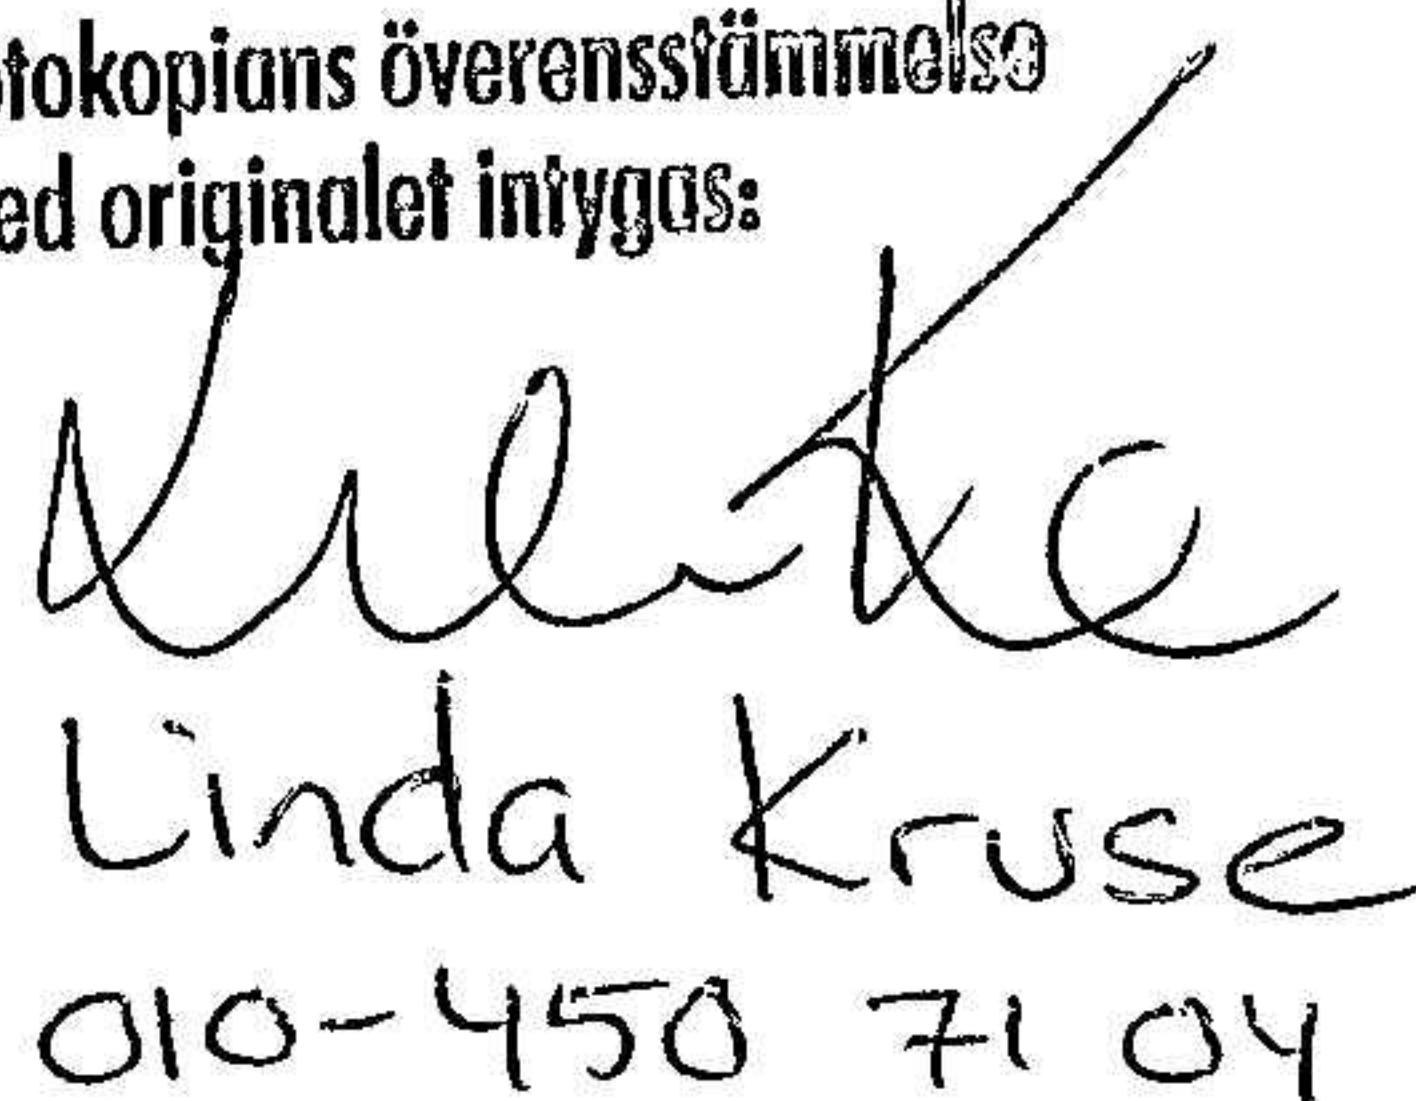 otokopians överensstämmelse
ed originalet intygas:
Linda Kruse
010-450 71 04